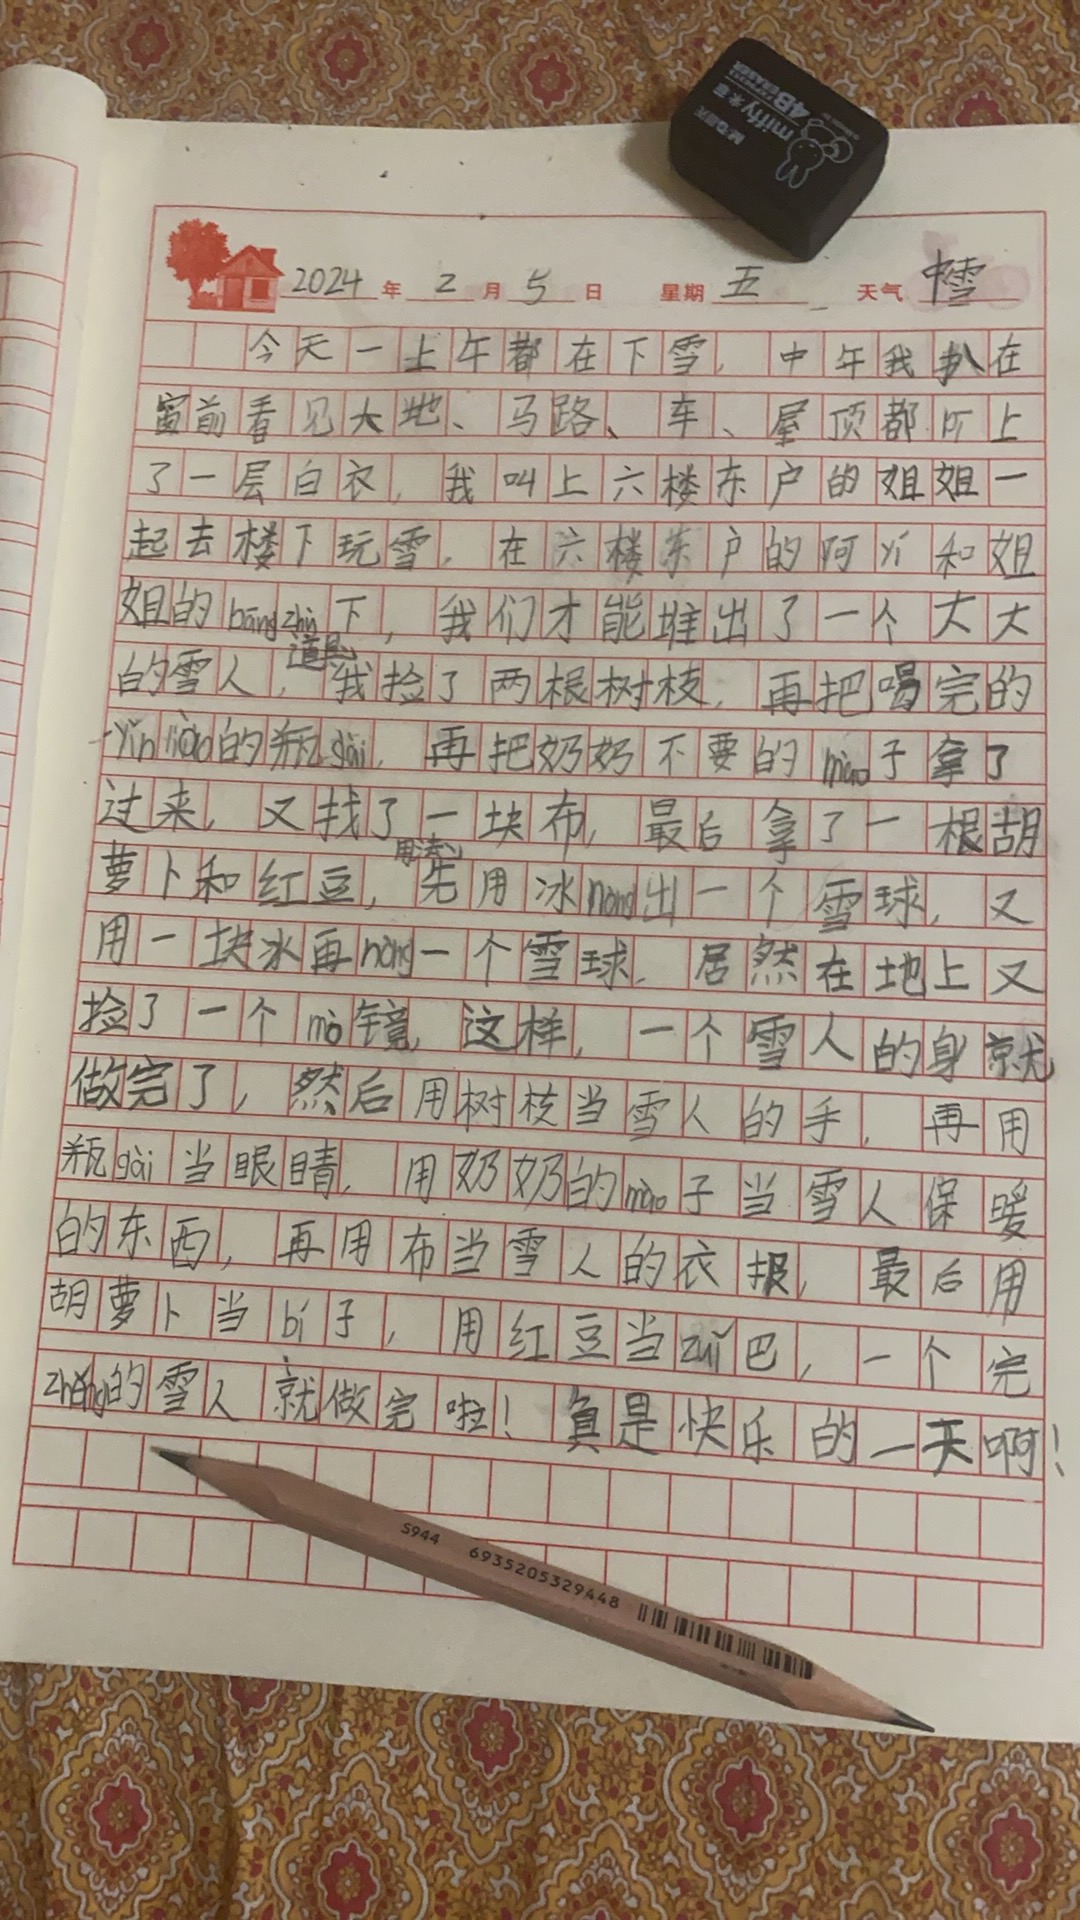 miffy米菲
4B
2024年2月5日 星期五 天气中雪
今天一上午都在下雪,中午我趴在
窗前看见大地、马路、车、屋顶都 上
了一层白衣,我叫上六楼东户的姐姐一
起去楼下玩雪,在六楼东户的阿yí和姐
姐的bāngzhù下,我们才能堆出了一个大大
道具
的雪人,我捡了两根树枝,再把喝完的
yǐnliào的瓶gài,再把奶奶不要的mào子拿了
过来,又找了一块布,最后拿了一根胡
用法
萝卜和红豆,先用冰nòng出一个雪球,又
用一块冰再nòng一个雪球,居然在地上又
捡了一个mò镜,这样,一个雪人的身就
做完了,然后用树枝当雪人的手,再用
瓶gài当眼睛,用奶奶的mào子当雪人保暖
的东西,再用布当雪人的衣报,最后用
胡萝卜当bí子,用红豆当zuǐ巴,一个完
zhěng的雪人就做完啦!真是快乐的一天啊!
S944 6935205329448